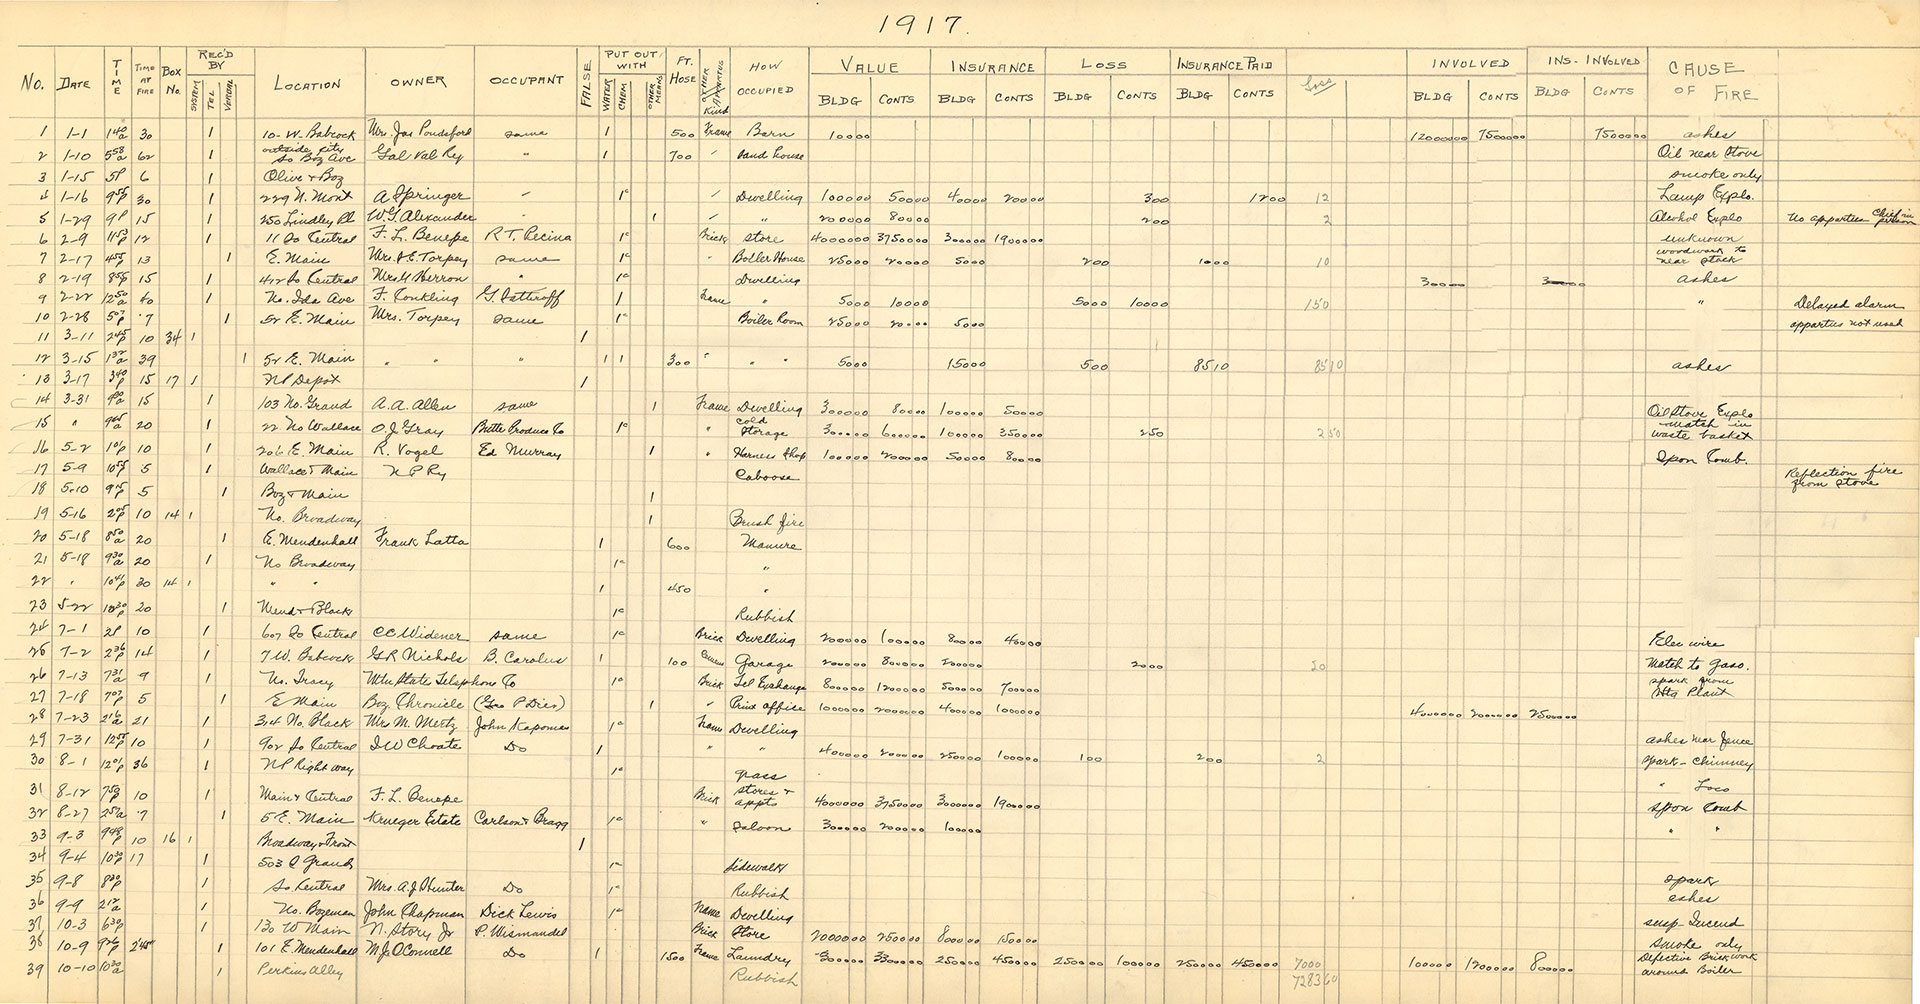 1917.
No. DATE TIME TIME AT FIRE BOX No. REC'D BY SYSTEM TEL VERBAL LOCATION OWNER OCCUPANT FALSE PUT OUT WITH WATER CHEM OTHER MEANS FT. HOSE OTHER APPARATUS Kind HOW OCCUPIED VALUE BLDG CONTS INSURANCE BLDG CONTS LOSS BLDG CONTS INSURANCE PAID BLDG CONTS Loss INVOLVED BLDG CONTS INS-INVOLVED BLDG CONTS CAUSE OF FIRE
1 1-1 1 40 a 30 1 10-W. Babcock Mrs. Jas Pondsford same 1 500 Frame Barn 10000 1200000 750000 750000 ashes
2 1-10 5 58 a 62 1 outside city So Boz Ave Gal Val Ry " 1 700 " Sand house Oil near stove
3 1-15 5P 6 1 Olive & Boz smoke only
4 1-16 9 55 P 30 1 229 N. Mont A Springer " 1c " Dwelling 100000 50000 40000 20000 300 1200 12
Lamp Explo.
5 1-29 9P 15 1 250 Lindley Pl W.G. Alexander " 1 " " 200000 80000 200 2 Alcohol Explo No appartus Chief in person
6 2-9 11 53 P 12 1 11 So Central F. L. Benepe R.T. Recina 1c Brick store 4000000 3750000 3000000 1900000 unknown
7 2-17 4 55 P 13 1 E. Main Mrs. J.E. Torpey same 1c " Boiler House 25000 20000 5000 200 1000 10 woodwork to near stack
8 2-19 8 55 P 15 1 412 So Central Mrs. H Herron " 1c Dwelling 30000 ashes
9 2-22 12 50 a 40 1 No. Ida Ave F. Conkling 1 Frame " 5000 10000 5000 10000 150 " Delayed alarm
10 2-28 5 07 P 7 1 52 E. Main Mrs. Torpey same 1c Boiler Room 25000 20000 5000 appartus not used
11 3-11 2 45 P 10 34 1 1
12 3-15 1 32 a 39 1 52 E. Main " " 1 1 300 " " " 5000 15000 500 8510 8510 ashes
13 3-17 3 40 P 15 17 1 NP Depot 1
14 3-31 15 1 103 No. Grand A.A. Allen same 1 Frame Dwelling 300000 80000 100000 50000 Oil Stove Explo
15 " 9 45 a 20 1 22 No Wallace O.J. Gray Butte Produce Co 1c " cold Storage 300000 600000 100000 350000 250 250 match in waste basket
16 5-2 10 1 206 E. Main R. Vogel Ed Murray 1 " Harness Shop 100000 200000 50000 80000 Spon Comb.
17 5-9 5 1 Wallace & Main N P Ry Caboose Reflection fire from stove
18 5-10 9 45 P 5 1 Boz & Main 1
19 5-16 2 05 P 10 14 1 No. Broadway 1 Brush fire
20 5-18 8 50 a 20 1 E. Mendenhall Frank Latta 1 600 Manure
21 5-18 9 30 a 20 1 No Broadway 1c "
22 " 10 41 P 30 14 1 " " 1 450
23 5-22 10 30 P 20 1 Mend & Black 1c Rubbish
24 7-1 2P 10 1 607 So Central CC Widener same 1c Brick Dwelling 200000 100000 80000 40000 Elec wire
25 7-2 2 36 P 14 7 W. Babcock G.R Nichols B. Carolus 1 100 Garage 200000 80000 20000 2000 20 Match to Gaso.
26 7-13 7 31 a 9 1 No. Tracy Mtn State Telephone Co 1c Brick Tel Exchange 800000 1200000 500000 700000 spark from Htg Plant
27 7-18 7 07 P 5 1 E Main Boz Chronicle (Geo P Dier) 1 " Print office 1000000 2000000 400000 1000000
28 7-23 2 16 a 21 1 314 No. Black Mrs M. Mertz John Kapomas 1c Frame Dwelling 400000 200000 250000
29 7-31 12 55 P 10 1 902 So Central I W Choate Do 1 " " 400000 200000 250000 100000 100 200 2 ashes near fence
30 8-1 12 01 P 36 NP Right way 1c grass spark-chimney
31 8-12 7 50 P 10 1 Main & Central F. L. Benepe Brick stores & appts 4000000 3750000 3000000 1900000 " Loco
32 8-27 2 57 a 7 1 5 E. Main Krueger Estate Carlson & Bragg 1c " Saloon 300000 200000 100000 Spon Comb
33 9-3 9 48 P 10 16 1 Broadway & Front 1 " "
34 9-4 10 30 P 17 1 503 S Grand 1c Sidewalk
35 9-8 8 30 P 1 So. Central Mrs. A.J. Hunter Do 1c Rubbish spark
36 9-9 2 12 a 1 No. Bozeman John Chapman Dick Lewis 1c Frame Dwelling ashes
37 10-3 6 30 P 1 130 W Main N. Story Jr P. Wismandel Brick Store 2000000 250000 800000 150000 susp-Incend
38 10-9 9 26 P 2'45" 1 101 E. Mendenhall M.J. O'Connell Do 1 1500 Frame Laundry 300000 330000 250000 450000 250000 100000 250000 450000 7000 100000 1200000 800000 smoke only
39 10-10 10 30 a 1 Perkins Alley Rubbish 728360 Defective Brickwork around Boiler